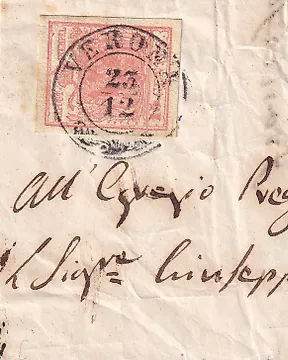 VERONA
23
12
All' Egregio
Sigre Giusepp